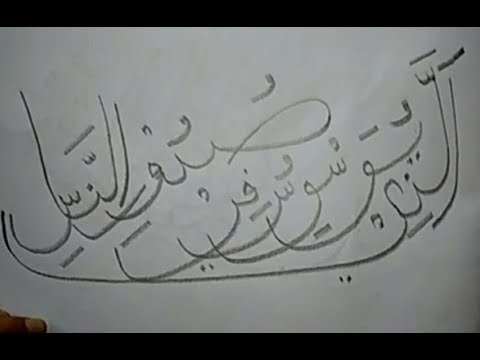 الَّذِي يُوَسْوِسُ فِي صُدُورِ النَّاسِ